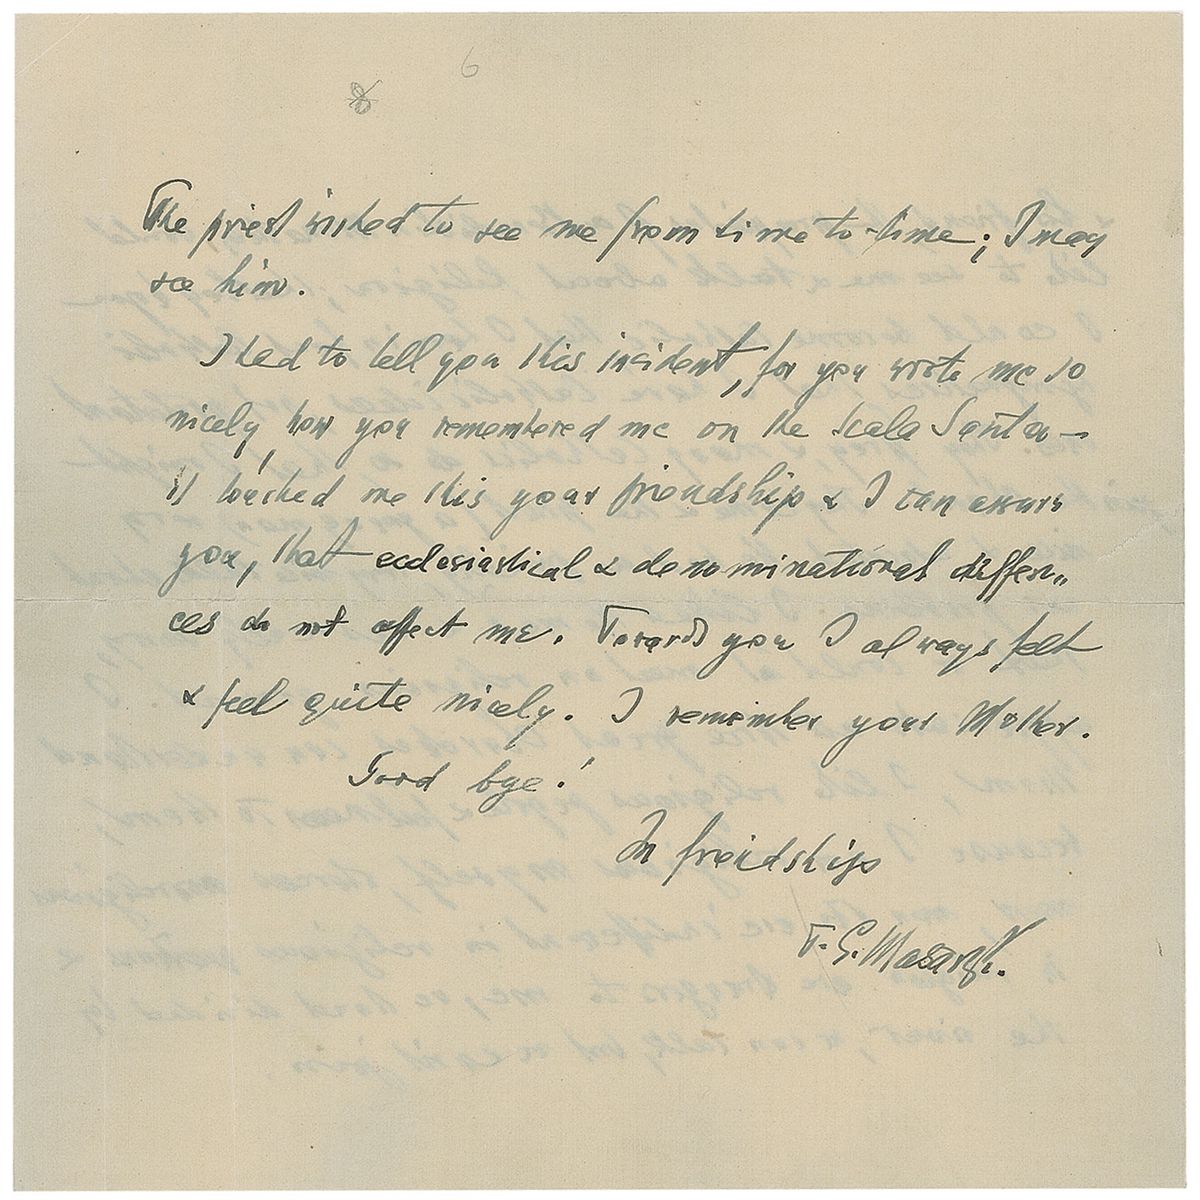 6
8
The priest wished to see me from time to time; I may
see him.
I had to tell you this incident, for you wrote me so
nicely, how you remembered me on the Scala Santa –
it touched me this your friendship & I can assure
you, that ecclesiastical & denominational differen„
ces do not affect me. Towards you I always felt
& feel quite nicely. I remember your Mother.
Good bye!
In friendship
T. G. Masaryk.